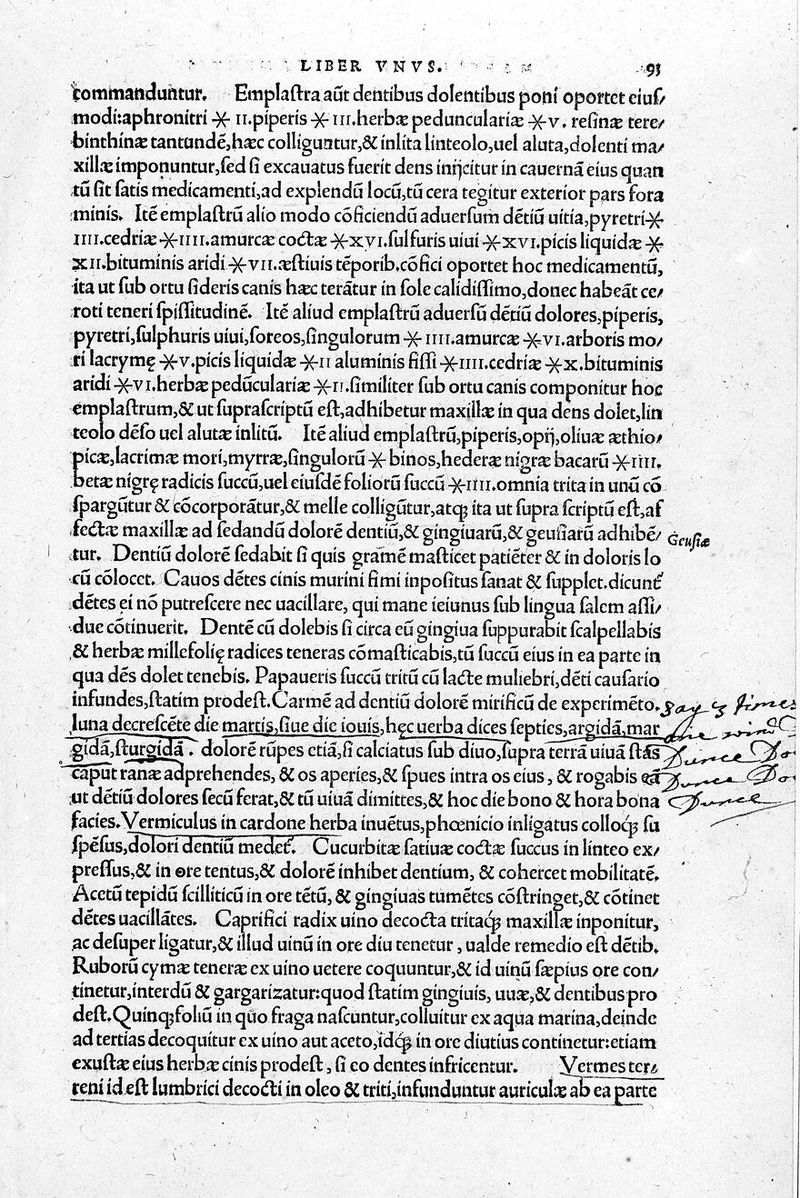 LIBER VNVS. 93
commanduntur. Emplaſtra aūt dentibus dolentibus poni oportet eiuſ⸗
modi:aphronitri ⚹ II.piperis ⚹ III.herbæ peduncularię ⚹ v. reſinæ tere⸗
binthinæ tantundē,hæc colliguntur,& inlita linteolo,uel aluta,dolenti ma⸗
xillæ imponuntur,ſed ſi excauatus fuerit dens inijcitur in cauernā eius quan
tū ſit ſatis medicamenti,ad explendū locū,tū cera tegitur exterior pars fora
minis. Itē emplaſtrū alio modo cōficiendū aduerſum dētiū uitia,pyretri⚹
IIII.cedriæ ⚹IIII.amurcæ coctæ ⚹XVI.ſulfuris uiui ⚹XVI.picis liquidæ ⚹
XII.bituminis aridi ⚹VII.æſtiuis tēporib.cōfici oportet hoc medicamentū,
ita ut ſub ortu ſideris canis hæc terātur in ſole calidiſſimo,donec habeāt ce⸗
roti teneri ſpiſſitudinē. Itē aliud emplaſtrū aduerſū dētiū dolores,piperis,
pyretri,ſulphuris uiui,ſoreos,ſingulorum ⚹IIII.amurcæ ⚹VI.arboris mo⸗
ri lacrymę ⚹v.picis liquidæ ⚹II aluminis fiſſi ⚹IIII.cedriæ ⚹X.bituminis
aridi ⚹VI.herbæ pedūculariæ ⚹II.ſimiliter ſub ortu canis componitur hoc
emplaſtrum,& ut ſupraſcriptū eſt,adhibetur maxillæ in qua dens dolet,lin
teolo dēſo uel alutæ inlitū. Itē aliud emplaſtrū,piperis,opij,oliuæ æthio⸗
picæ,lacrimæ mori,myrræ,ſingulorū ⚹ binos,hederæ nigræ bacarū ⚹IIII.
betæ nigrę radicis ſuccū,uel eiuſdē foliorū ſuccū ⚹IIII.omnia trita in unū cō
ſpargūtur & cōcorporātur,& melle colligūtur,atq́; ita ut ſupra ſcriptū eſt,af
fectæ maxillæ ad ſedandū dolorē dentiū,& gingiuarū,& geuſiarū adhibē⸗
tur. Dentiū dolorē ſedabit ſi quis gramē maſticet patiēter & in doloris lo
Geuſiæ
cū cōlocet. Cauos dētes cinis murini fimi inpoſitus ſanat & ſupplet.dicunt̄
dētes ei nō putreſcere nec uacillare, qui mane ieiunus ſub lingua ſalem aſſi⸗
due cōtinuerit. Dentē cū dolebis ſi circa eū gingiua ſuppurabit ſcalpellabis
& herbæ millefolię radices teneras cōmaſticabis,tū ſuccū eius in ea parte in
qua dēs dolet tenebis. Papaueris ſuccū tritū cū lacte muliebri,dēti cauſario
infundes,ſtatim prodeſt.Carmē ad dentiū dolorē mirificū de experimēto.
say 3 times
luna decreſcēte die martis,ſiue die iouis,hęc uerba dices ſepties,argidā,mar
gidā,ſturgidā. dolorē rūpes etiā,ſi calciatus ſub diuo,ſupra terrā uiuā ſtās
caput ranæ adprehendes, & os aperies,& ſpues intra os eius, & rogabis eā
ut dētiū dolores ſecū ferat,& tū uiuā dimittes,& hoc die bono & hora bona
facies.Vermiculus in cardone herba inuētus,phœnicio inligatus colloq́; ſu
ſpēſus,dolori dentiū medet̄. Cucurbitæ ſatiuæ coctæ ſuccus in linteo ex⸗
preſſus,& in ore tentus,& dolorē inhibet dentium, & cohercet mobilitatē.
Acetū tepidū ſcilliticū in ore tētū, & gingiuas tumētes cōſtringet,& cōtinet
dētes uacillātes. Caprifici radix uino decocta tritaq́; maxillæ inponitur,
ac deſuper ligatur,& illud uinū in ore diu tenetur, ualde remedio eſt dētib.
Ruborū cymæ teneræ ex uino uetere coquuntur,& id uinū ſæpius ore con⸗
tinetur,interdū & gargarizatur:quod ſtatim gingiuis, uuæ,& dentibus pro
deſt.Quinq́;foliū in quo fraga naſcuntur,colluitur ex aqua marina,deinde
ad tertias decoquitur ex uino aut aceto,idq́; in ore diutius continetur:etiam
exuſtæ eius herbæ cinis prodeſt, ſi eo dentes infricentur. Vermes ter⸗
reni id eſt lumbrici decocti in oleo & triti,infunduntur auriculæ ab ea parte